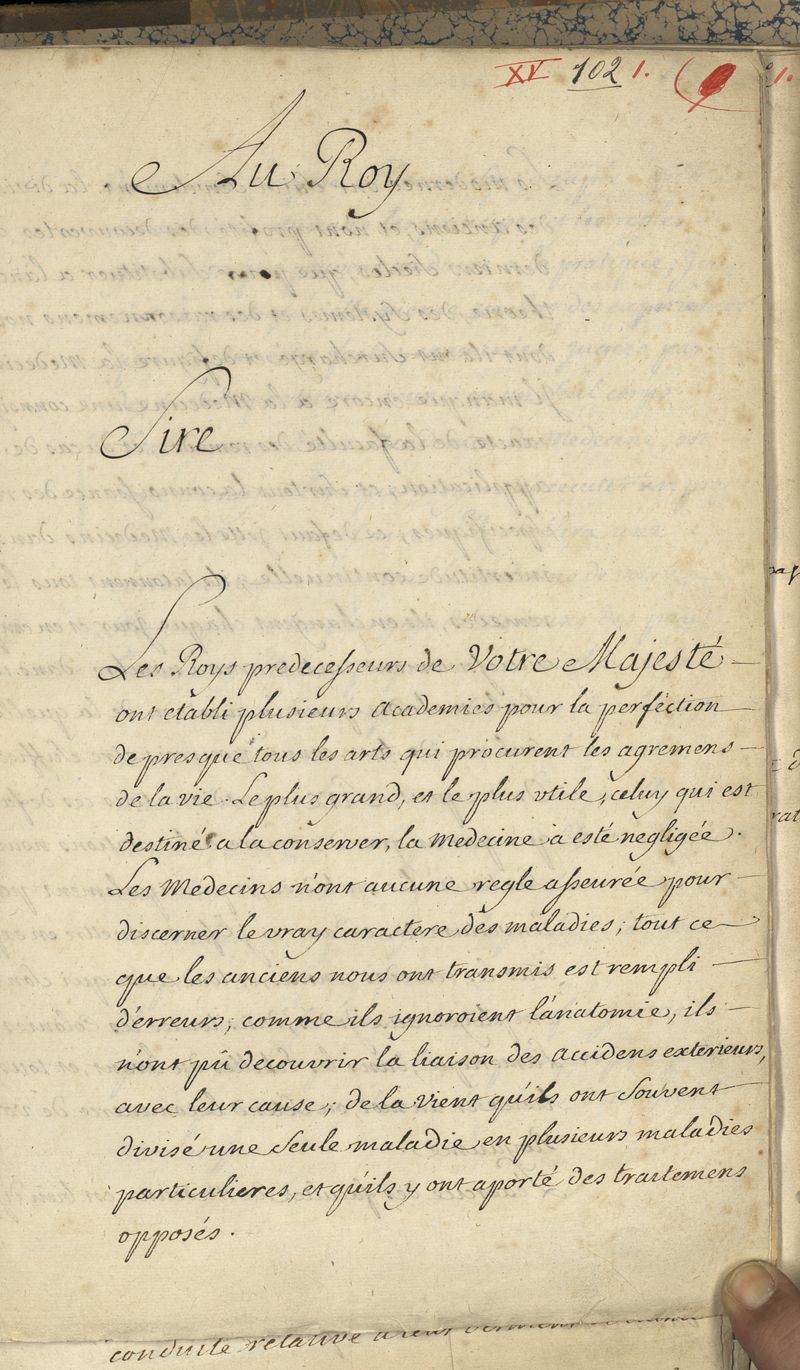 XV 102 1.
Au Roy
Sire
Les Roys predecesseurs de Votre Majesté
ont etabli plusieurs academies pour la perfection
de presque tous les arts qui procurent les agremens
de la vie. Le plus grand, et le plus vtile, celuy qui est
destiné a la conserver, la Medecine a esté negligée.
Les Medecins n'ont aucune regle asseurée pour
discerner le vray caractere des maladies; tout ce
que les anciens nous ont transmis est rempli
d'erreurs; comme ils ignoroient l'anatomie, ils
n'ont pû decouvrir la liaison des accidens exterieurs,
avec leur cause; de la vient qu'ils ont souvent
divisé une seule maladie en plusieurs maladies
particulieres, et qu'ils y ont aporté des traitemens
opposés.
conduite relative a leur